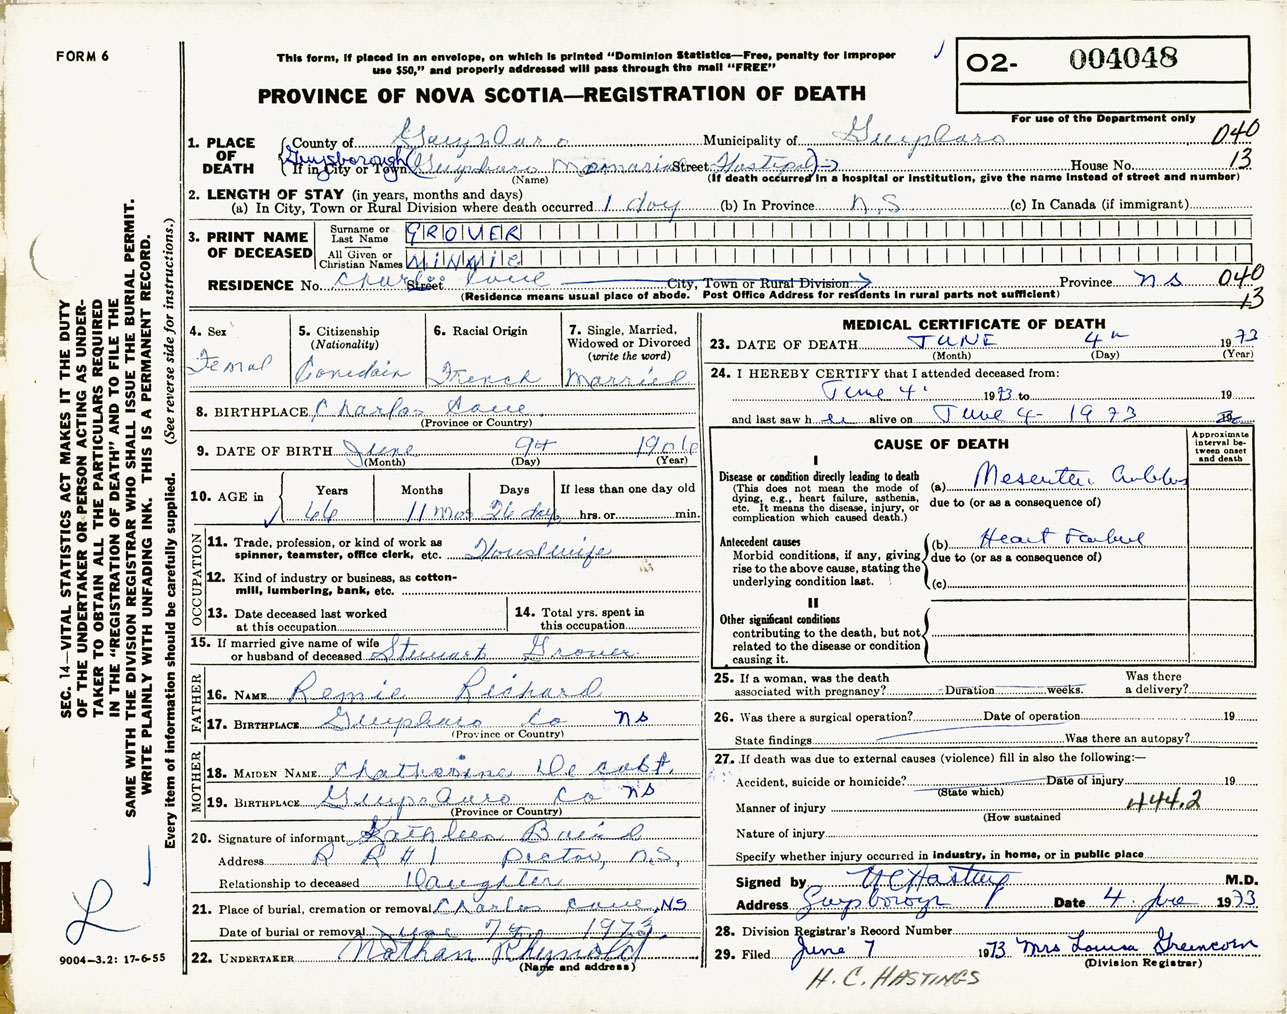 FORM 6
This form, if placed in an envelope, on which is printed "Dominion Statistics—Free, penalty for improper
use $50," and properly addressed will pass through the mail "FREE"
PROVINCE OF NOVA SCOTIA—REGISTRATION OF DEATH
O2- 004048
For use of the Department only
1. PLACE OF DEATH
County of Guysboro Municipality of Guysboro 040
Guysborough
If in City or Town (Guysboro Memorial Street Hospital) 13
House No.
(Name) (If death occurred in a hospital or institution, give the name instead of street and number)
2. LENGTH OF STAY (in years, months and days)
(a) In City, Town or Rural Division where death occurred 1 day (b) In Province N.S (c) In Canada (if immigrant)
3. PRINT NAME OF DECEASED
Surname or Last Name GROVER
All Given or Christian Names MiNNie
RESIDENCE No. Charlos Cove Street City, Town or Rural Division Province NS 040
(Residence means usual place of abode. Post Office Address for residents in rural parts not sufficient) 13
4. Sex
Femal
5. Citizenship
(Nationality)
Canadain
6. Racial Origin
French
7. Single, Married, Widowed or Divorced
(write the word)
Married
8. BIRTHPLACE Charlos Cove
(Province or Country)
9. DATE OF BIRTH June 9th 1906
(Month) (Day) (Year)
10. AGE in
Years Months Days If less than one day old
66 11 mos 26 day hrs. or min.
OCCUPATION
11. Trade, profession, or kind of work as
spinner, teamster, office clerk, etc. Housewife
12. Kind of industry or business, as cotton-
mill, lumbering, bank, etc.
13. Date deceased last worked
at this occupation
14. Total yrs. spent in
this occupation
15. If married give name of wife
or husband of deceased Stewart Grover
FATHER
16. NAME Remie Richard
17. BIRTHPLACE Guysboro Co NS
(Province or Country)
MOTHER
18. MAIDEN NAME Chatherine De
19. BIRTHPLACE Guysboro Co NS
(Province or Country)
20. Signature of informant Kathleen
Address R R # 1 Pictou, N.S,
Relationship to deceased Daughter
21. Place of burial, cremation or removal Charlos Cove, NS
Date of burial or removal June 7th, 1973.
22. UNDERTAKER Nathan
(Name and address)
MEDICAL CERTIFICATE OF DEATH
23. DATE OF DEATH JUNE 4th 1973
(Month) (Day) (Year)
24. I HEREBY CERTIFY that I attended deceased from:
June 4 1973 to
and last saw h er alive on June 4 - 1973
CAUSE OF DEATH
Approximate interval between onset and death
I
Disease or condition directly leading to death
(This does not mean the mode of
dying, e.g., heart failure, asthenia,
etc. It means the disease, injury, or
complication which caused death.)
(a)
due to (or as a consequence of)
Antecedent causes
Morbid conditions, if any, giving
rise to the above cause, stating the
underlying condition last.
(b) Heart
due to (or as a consequence of)
(c)
II
Other significant conditions
contributing to the death, but not
related to the disease or condition
causing it.
25. If a woman, was the death
associated with pregnancy? Duration weeks. Was there
a delivery?
26. Was there a surgical operation? Date of operation 19
State findings Was there an autopsy?
27. If death was due to external causes (violence) fill in also the following:—
Accident, suicide or homicide? Date of injury 19
(State which)
444.2
Manner of injury
(How sustained
Nature of injury
Specify whether injury occurred in industry, in home, or in public place
Signed by H C Hastings M.D.
Address Guysborough Date 4. June 1973
28. Division Registrar's Record Number
29. Filed June 7 1973 Mrs Louisa Greencorn
(Division Registrar)
H. C. HASTINGS
SEC. 14—VITAL STATISTICS ACT MAKES IT THE DUTY
OF THE UNDERTAKER OR PERSON ACTING AS UNDER-
TAKER TO OBTAIN ALL THE PARTICULARS REQUIRED
IN THE "REGISTRATION OF DEATH" AND TO FILE THE
SAME WITH THE DIVISION REGISTRAR WHO SHALL ISSUE THE BURIAL PERMIT.
WRITE PLAINLY WITH UNFADING INK. THIS IS A PERMANENT RECORD.
Every item of information should be carefully supplied. (See reverse side for instructions.)
9004-3.2: 17-6-55